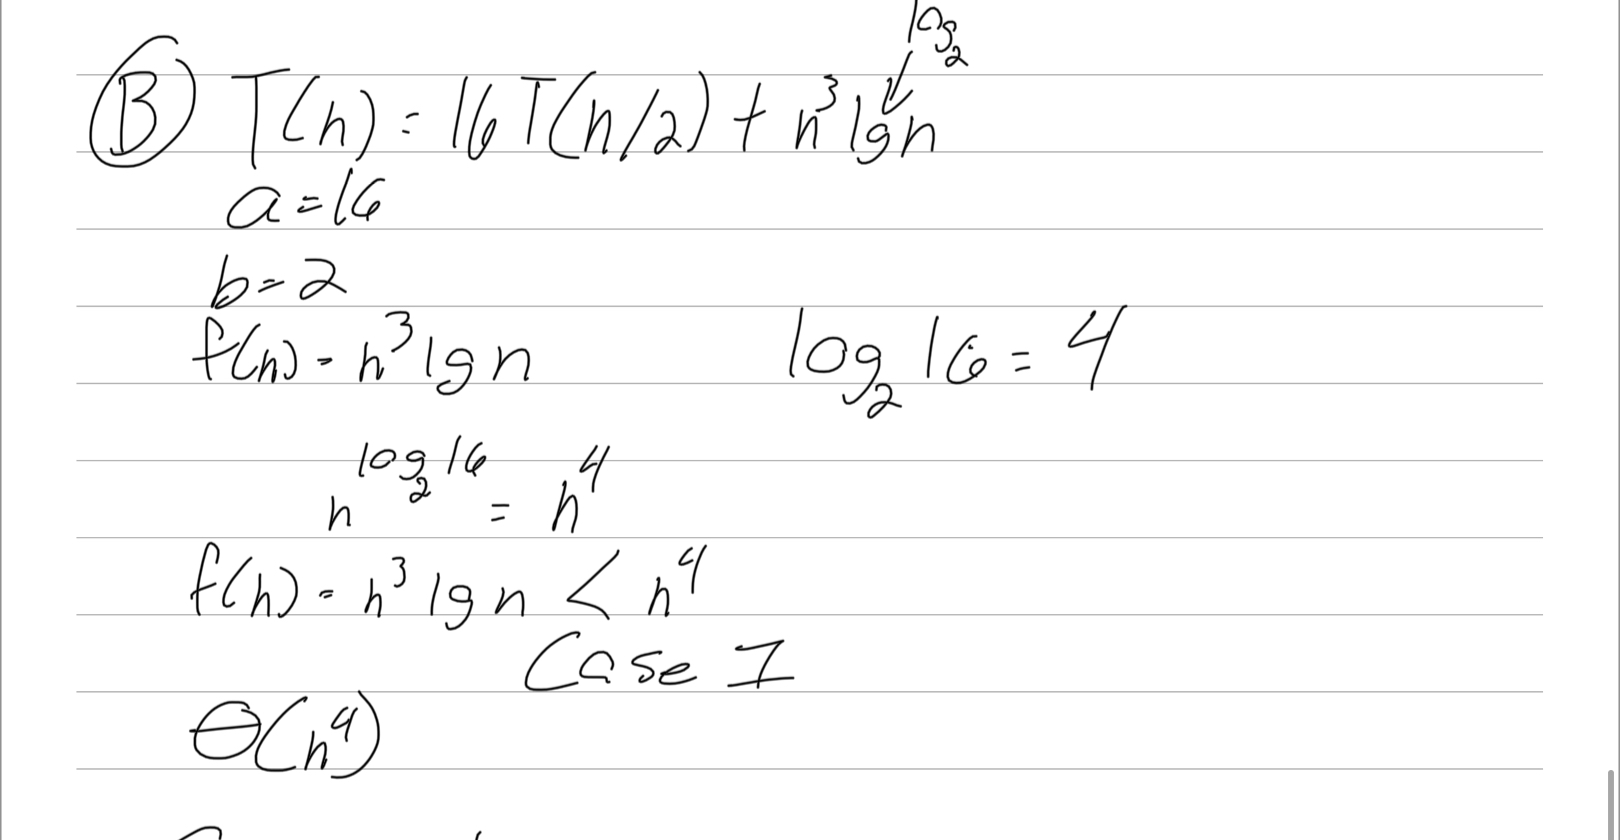 log₂
Ⓑ T(n) = 16T(n/2) + n³ lg n
a = 16
b = 2
f(n) = n³ lg n log₂ 16 = 4
n^(log₂ 16) = n⁴
f(n) = n³ lg n < n⁴
Case I
Θ(n⁴)